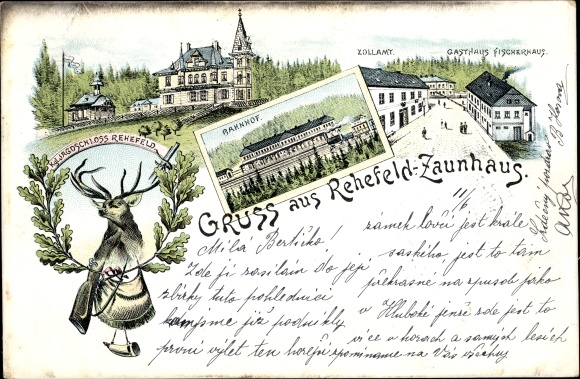 K. JAGDSCHLOSS REHEFELD
BAHNHOF.
ZOLLAMT.
GASTHAUS FISCHERHAUS.
GRUSS aus Rehefeld-Zaunhaus.
11/6
Milá Bertičko!
Zde ji zasílám do její
sbírky tuto pohlednici
kampsme již podnikly
první výlet ten hořejší
zámek lovčí jest krále
saského, jest to tam
překrásné na způsob jako
v Hluboké jenže zde jest to
více v horách a samých lesích
zpomínáme na Vás všechny
Srdečný